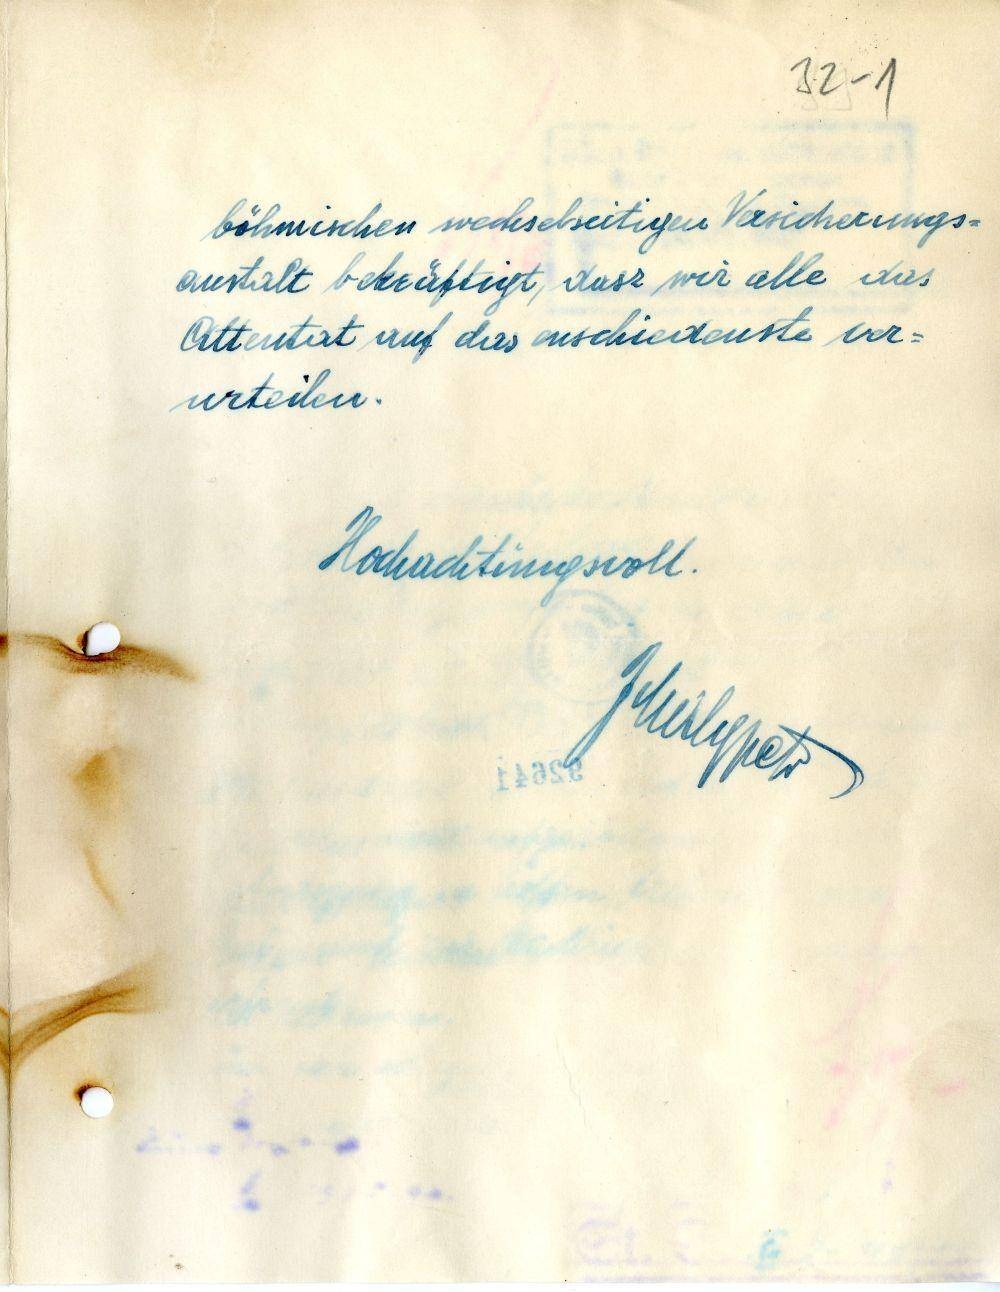 32-1
böhmischen wechselseitigen Versicherungs=
anstalt bekräftigt, dasz wir alle das
Attentat auf das enschiedenste ver=
urteilen.
Hochachtungsvoll.
92641